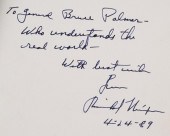 To General Bruce Palmer -
Who understands the
real world -
With best wishes
from
Richard Nixon
4-24-89